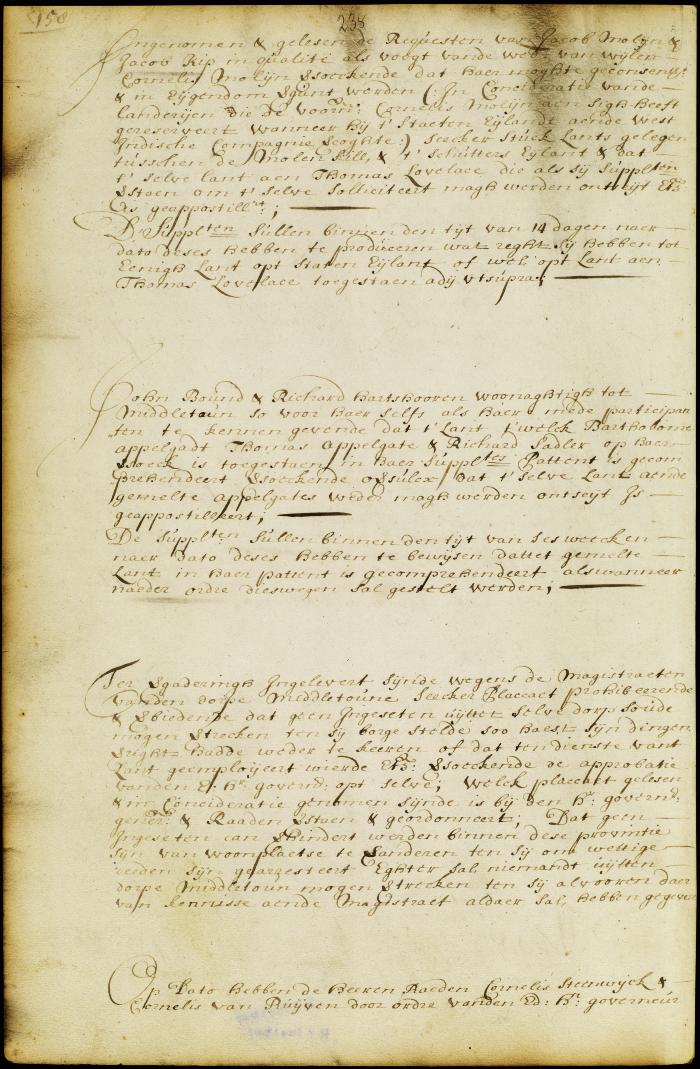 158
238
Ingenomen & gelesen de Requesten van Jacob Molijn &
Jacob Kip in qualite als voogt vande wede: van wijlen
Cornelis Molijn Versoeckende dat haer moghte geconsent:t
& in Eijgendom vergunt werden (: In Concideratie vande
landerijen die de voorn: Cornelis Molijn aen sigh heeft
gereserveert wanneer hij t' Staeten Eijlandt aende West
Indische Compagnie verkoghte:) seecker stuck lants gelegen
tusschen de Molen kill, & t' schutters Eijlant & dat
t' selve lant aen Thomas Lovelace die als sij Supplten
verstaen om t' selve solliciteert magh werden ontseijt Etc
is geappostill:t ;
D' Supplten sullen binnen den tijt van 14 dagen naer
dato deses hebben te produceren wat reght sij hebben tot
Eenigh Lant opt Staten Eijlant of wel opt Lant aen
Thomas Lovelace toegestaen adij utsupra;
John Bound & Richard Hartshooren woonaghtigh tot
Middletoun so voor haer selfs als haer mede participan
ten te kennen gevende dat t' Lant t'welck Bartholome
appelgadt Thomas appelgate & Richard Sadler op haer
versoeck is toegestaen in haer Supplten Pattent is gecom
prehendeert versoeckende oversulcx dat t' selve Lant aende
gemelte appelgates weder magh werden ontseijt Is
geappostilleert;
De Supplten sullen binnen den tijt van ses weecken
naer dato deses hebben te bewijsen dattet gemelte
Lant in haer pattent is gecomprehendeert alswanneer
naeder ordre dieswegen sal gestelt werden;
Ter vergaderingh Ingelevert sijnde wegens de Magistraeten
vanden dorpe Middletoune seecker Placcaet prohibeerende
& verbiedende dat geen Ingeseten uijttet selve dorp soude
mogen vertrecken ten sij borge stelde soo haest sijn dingen
verright hadde weder te keeren of dat ten dienste vant
Lant geemploijeert wierde Etc: versoeckende de approbatie
vanden E: hr: governd: opt selve; Welck placcaet gelesen
& in Concideratie genomen sijnde is bij den hr: governr,
gener: & Raaden verstaen & geordonneert; Dat geen
Ingeseten can verhindert werden binnen dese provintie
sijn van woonplaetse te veranderen ten sij om wettige
reeden sijn gearresteert Eghter sal niemandt uijtten
dorpe Middletoun mogen vertrecken ten sij alvooren daer
van kennisse aende Magistraet aldaer sal hebben gegeven
Op Dato hebben de heeren Raeden Cornelis Steenwijck &
Cornelis van Ruijven door ordre vanden Ed: hr: governeur